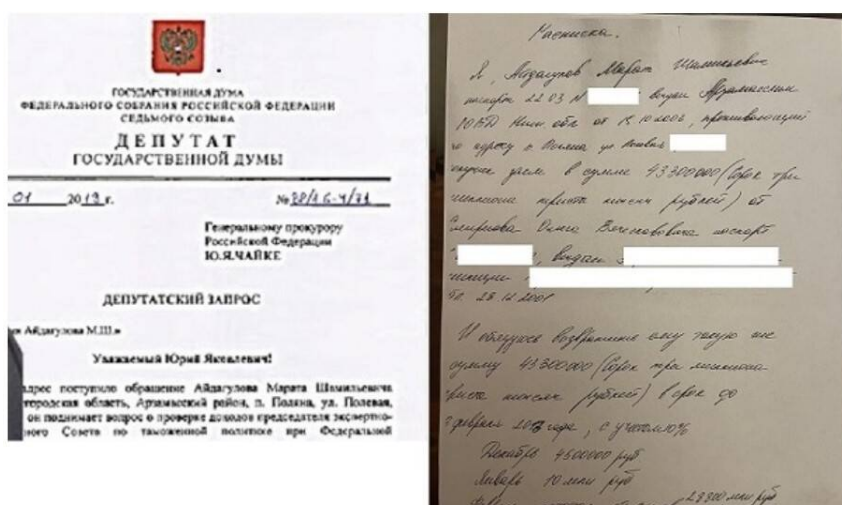 ГОСУДАРСТВЕННАЯ ДУМА
ФЕДЕРАЛЬНОГО СОБРАНИЯ РОССИЙСКОЙ ФЕДЕРАЦИИ
СЕДЬМОГО СОЗЫВА
ДЕПУТАТ
ГОСУДАРСТВЕННОЙ ДУМЫ
01 2019 г. №
Генеральному прокурору
Российской Федерации
Ю.Я.ЧАЙКЕ
ДЕПУТАТСКИЙ ЗАПРОС
Айдагулова М.Ш.»
Уважаемый Юрий Яковлевич!
адрес поступило обращение Айдагулова Марата Шамильевича
городская область, Арзамасский район, п. Поляна, ул. Полевая,
он поднимает вопрос о проверке доходов председателя экспертно-
ного Совета по таможенной политике при Федеральной
Расписка.
Я, Айдагулов Марат Шамильевич
паспорт 22 03 N выдан Арзамасским
обл от проживающий
адресу п. Поляна ул
займ в сумме 43300000 (Сорок три
миллиона триста тысяч рублей) от
Олега Вячеславовича паспорт
выдан
28.12.2001
И обязуюсь возвратить ему такую же
сумму 43300000 (Сорок три миллиона
тысяч рублей) в срок до
февраля года, с учетом 10%
Декабрь 4500000 руб.
Январь 10 млн руб